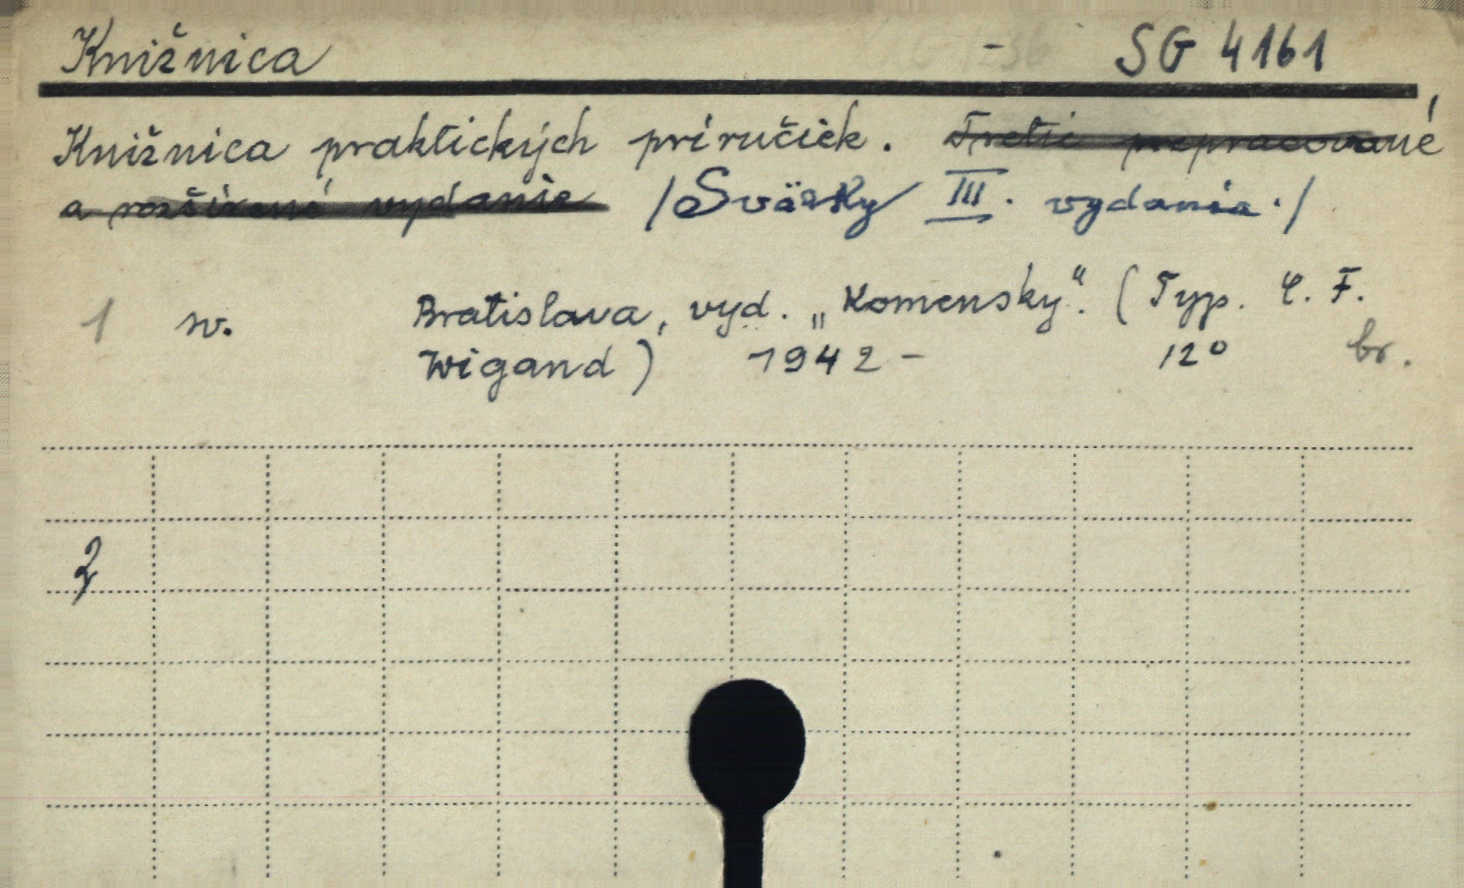 Knižnica - SG 4161
Knižnica praktických príručiek. Tretie prepracované
a rozšírené vydanie /Sväzky III. vydania./
1 sv. Bratislava, vyd. „Komensky“. (Typ. C. F.
Wigand) 1942 - 12° br.
2